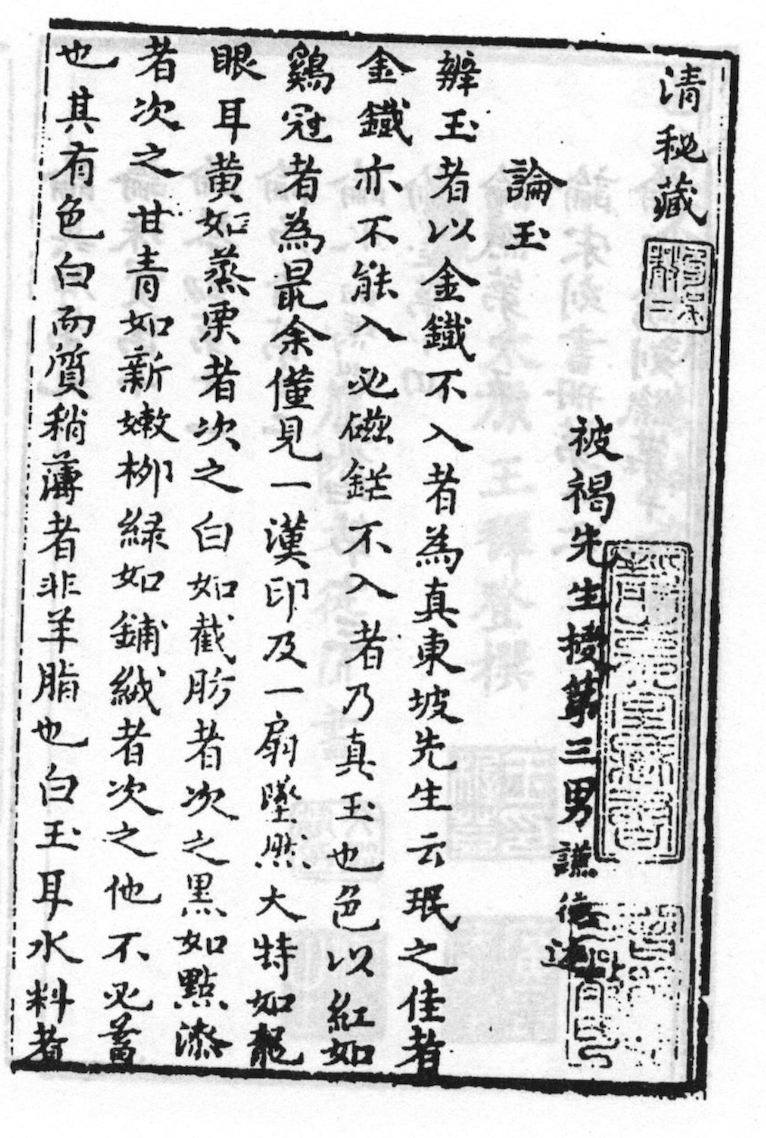 清秘藏
被褐先生授第三男謙德述
論玉
辨玉者以金鐵不入者為真東坡先生云珉之佳者
金鐵亦不能入必磁鋩不入者乃真玉也色以紅如
鷄冠者為最余僅見一漢印及一扇墜然大特如龍
眼耳黄如蒸栗者次之白如截肪者次之黑如點漆
者次之甘青如新嫩柳緑如鋪絨者次之他不必蓄
也其有色白而質稍薄者非羊脂也白玉耳水料者